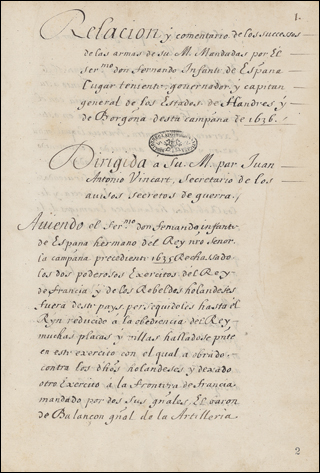 1.
Relacion, y comentario de los successos
de las armas de su M. Mandadas por El
ser.mo don fernando Infante de España
Lugar teniente, governador, y capitan
general de los Estados de flandres, y
de Borgoña desta campaña de 1636.
Dirigida a Su. M. por Juan
Antonio Vincart, Secretario de los
avisos secretos de guerra.
Aviendo el Ser.mo don fernando infante
de España hermano del Rey nro señor
la campaña precedente 1635 Rechassado
los dos poderosos Exercitos del Rey
de francia, y de los Rebeldes holandeses
fuera destos pays, perseguidolos hasta el
Ryn reducido a la obediencia del Rey
muchas plaças y villas halladose pnte
en este exercito con el qual a obrado
contra los dhos holandeses y dexado
otro Exercito a la frontera de francia
mandado por dos sus gnãles, El varon
de Balançon gñal de la Artilleria
2